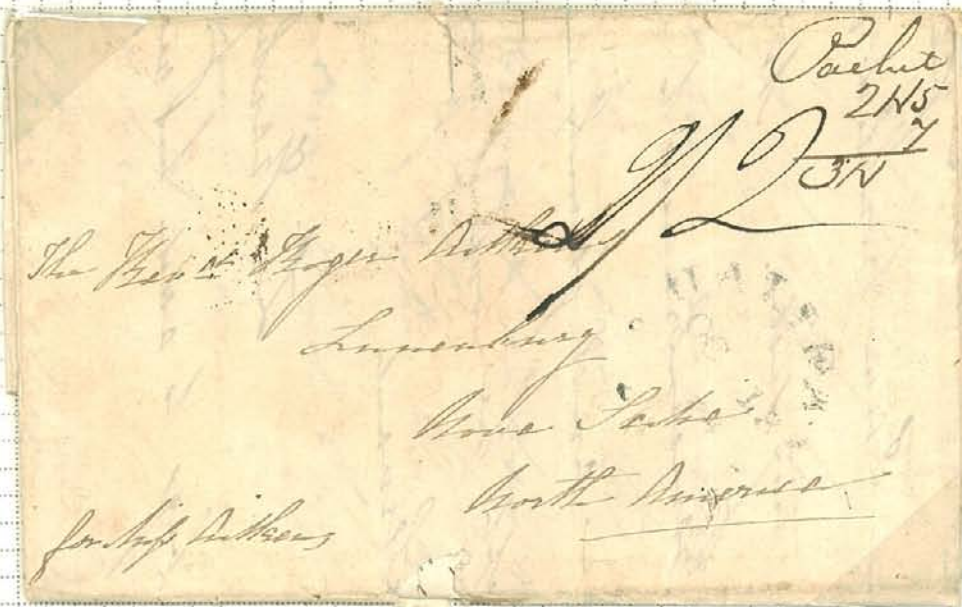 Packet
2N5
7
3N
2/2
The Revd. Roger Aitken
Lunenburg
Nova Scotia
North America
for Miss Aitken